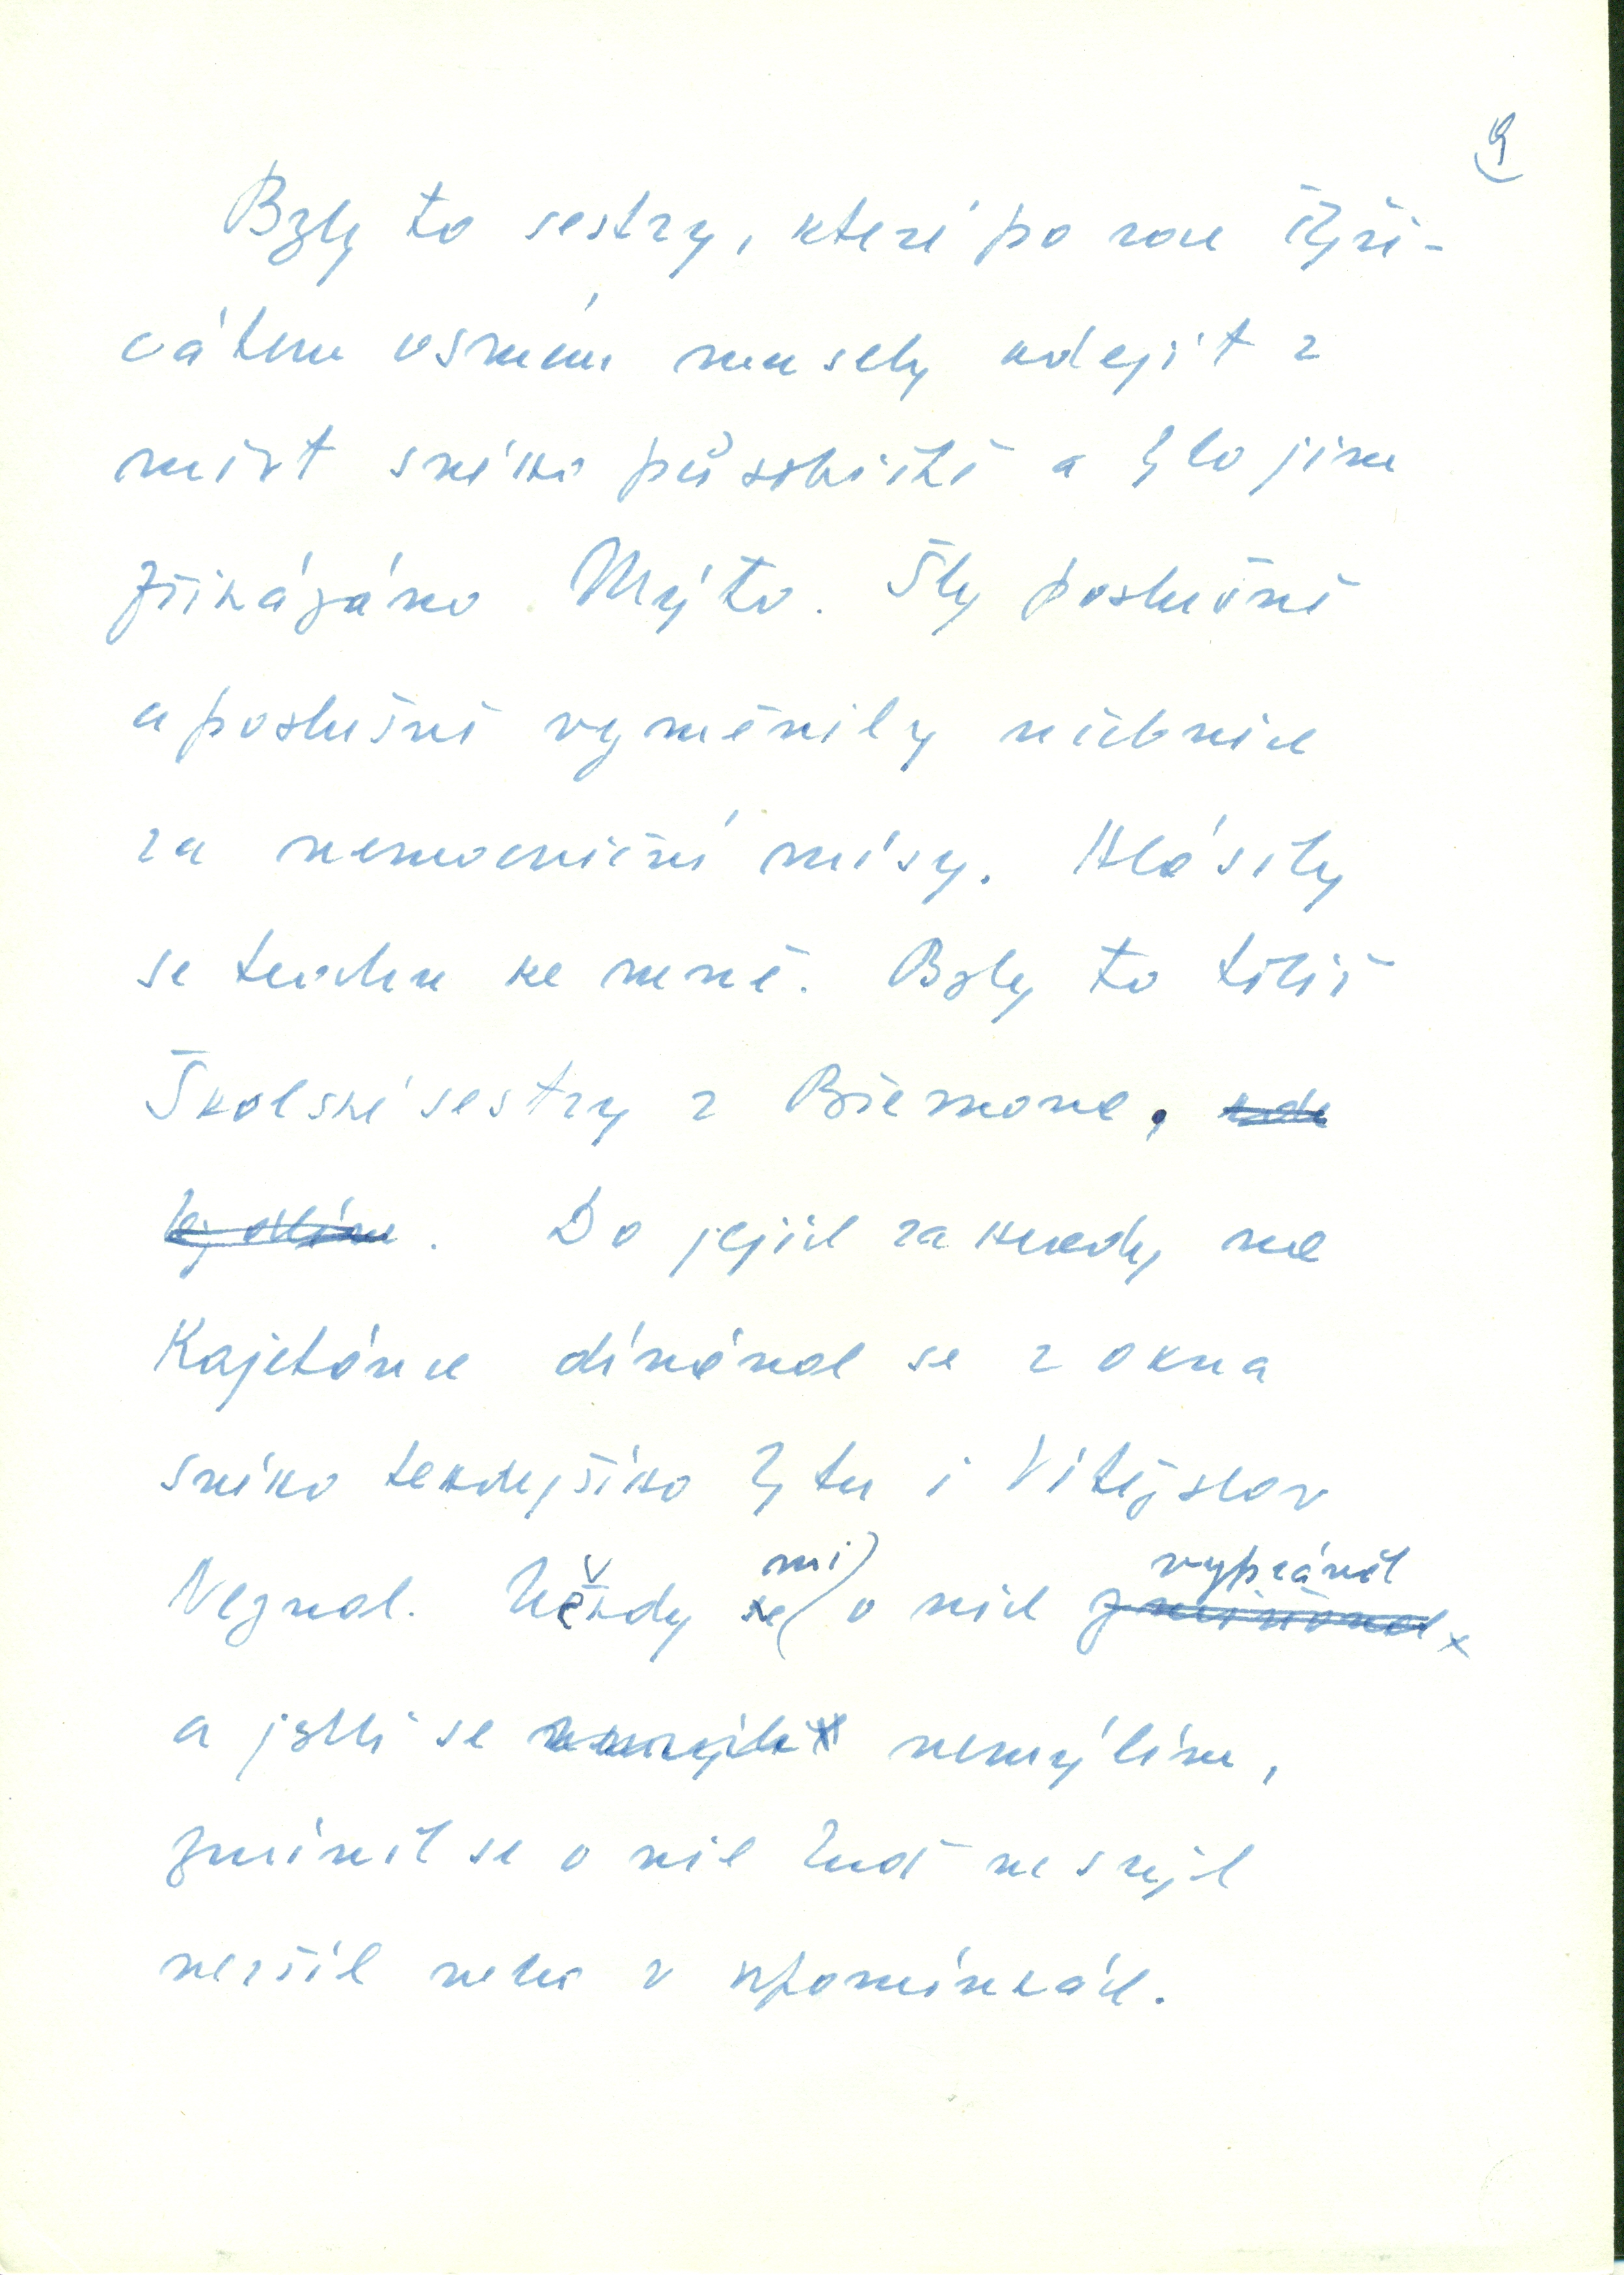 9
Byly to sestry, které po roce čtyři-
cátém osmém musely odejít z
míst svého působiště a bylo jim
přikázáno Mýto. Šly poslušně
a poslušně vyměnily učebnice
za nemocniční mísy. Hlásily
se trochu ke mně. Byly to totiž
Školské sestry z Břevnova,
. Do jejich zahrady na
Kajetánce díval se z okna
svého tehdejšího bytu i Vítězslav
Nezval. Někdy mi o nich vyprávěl
a jestli se nemýlím,
zmínil se o nich buď ve svých
verších nebo v vzpomínkách.